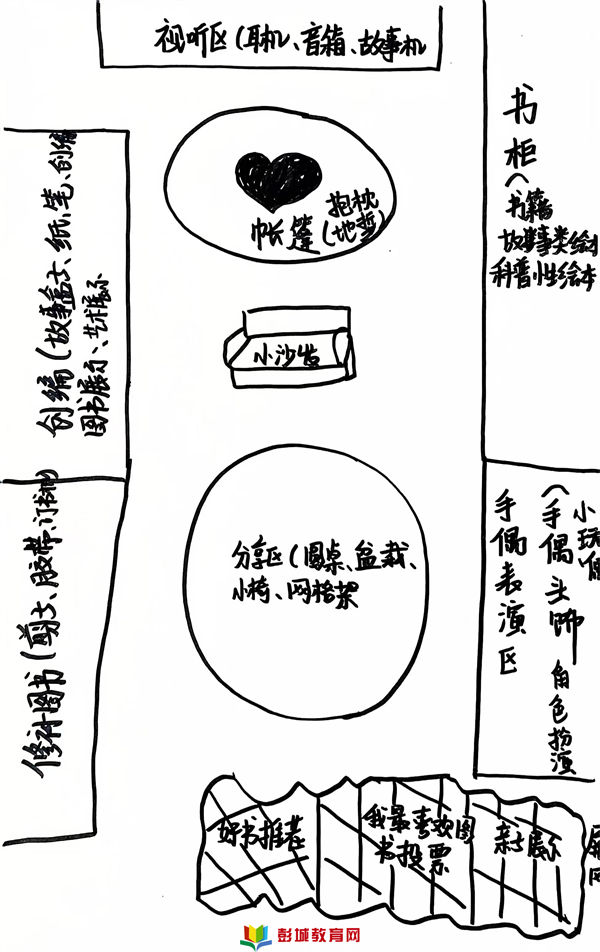 视听区(耳机、音箱、故事机
抱枕
帐篷(地垫)
小沙发
书柜(书籍
故事类绘本
科普性绘本
创编(故事盒、纸、笔、创编
图书展示、艺术展示
修补图书(剪刀、胶带、订书机)
分享区(圆桌、盆栽、
小椅、网格架
手偶表演区
(手偶头饰 角色扮演
小玩偶
好书推荐
我最喜欢图
书投票
新书展示
彭城教育网